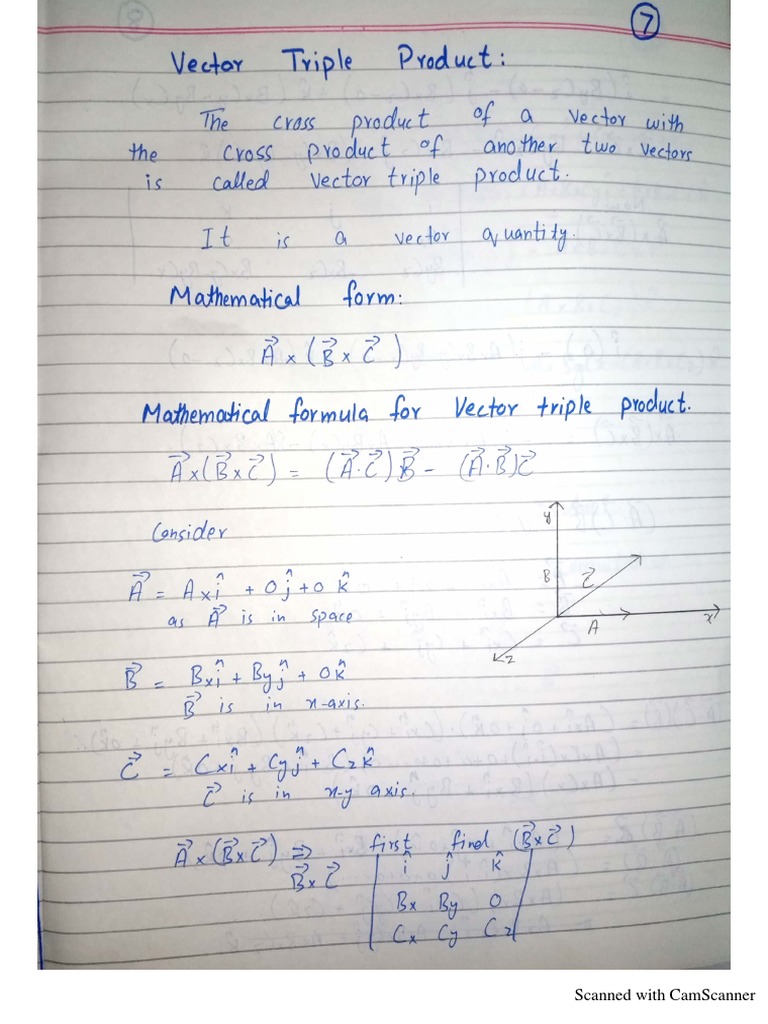 7
Vector Triple Product:
The cross product of a vector with
the cross product of another two vectors
is called vector triple product.
It is a vector quantity.
Mathematical form:
A⃗ × (B⃗ × C⃗ )
Mathematical formula for Vector triple product.
A⃗ × (B⃗ × C⃗) = (A⃗ · C⃗) B⃗ − (A⃗ · B⃗) C⃗
Consider
y
B
C⃗
A
x
z
A⃗ = Axî + 0ĵ + 0 k̂
as A⃗ is in space
B⃗ = Bxî + Byĵ + 0k̂
B⃗ is in x-axis.
C⃗ = Cxî + Cyĵ + Czk̂
C⃗ is in x-y axis.
A⃗ × (B⃗ × C⃗) ⇒ first find (B⃗ × C⃗)
B⃗ × C⃗
î ĵ k̂
Bx By 0
Cx Cy Cz
Scanned with CamScanner